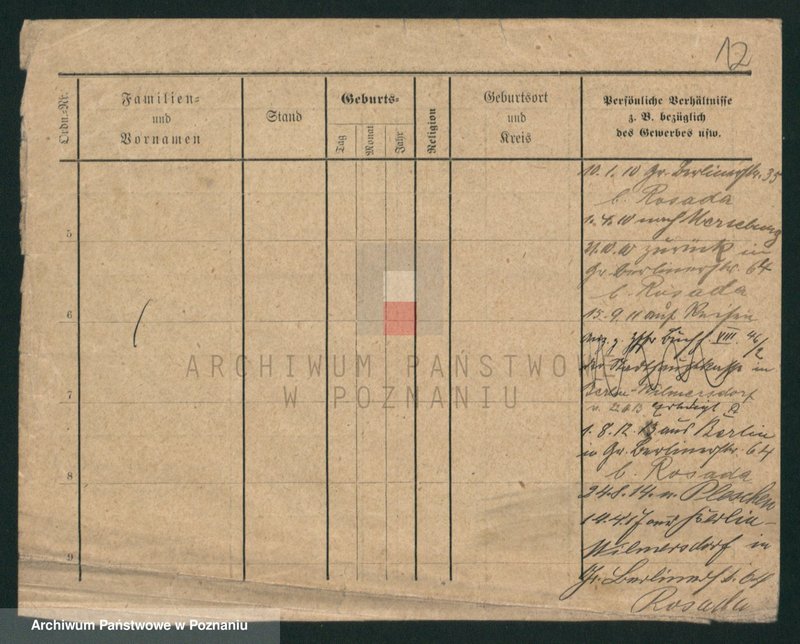 12
Ordn.-Nr.
Familien-
und
Vornamen
Stand
Geburts-
Tag
Monat
Jahr
Religion
Geburtsort
und
Kreis
Persönliche Verhältnisse
z. B. bezüglich
des Gewerbes usw.
10.1.10 Gr. Berlinerstr. 35
b. Rosada
1.4.10 nach Merseburg
zurück in
Gr. Berlinerstr. 64
b. Rosada
15.9.11 auf Reisen
VIII. 46/2
in
Berlin-Wilmersdorf
1.8.12 aus Berlin
in Gr. Berlinerstr. 64
b. Rosada
24.8.14 n. Pleschen
14.4.17 aus Berlin-
Wilmersdorf in
Gr. Berlinerstr. 64
Rosada
5
6
7
8
9
ARCHIWUM PAŃSTWOWE
W POZNANIU
Archiwum Państwowe w Poznaniu